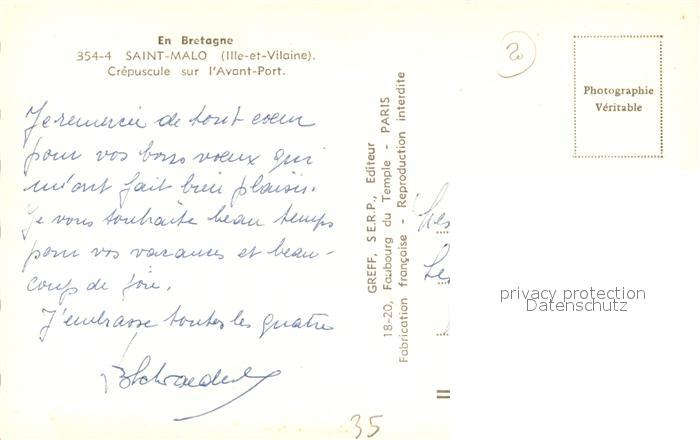 En Bretagne
354-4 SAINT-MALO (Ille-et-Vilaine).
Crépuscule sur l'Avant-Port.
Je remercie de tout coeur
pour vos bons voeux qui
m'ont fait bien plaisir.
Je vous souhaite beau temps
pour vos vacances et beau-
coup de joie.
J'embrasse toutes les quatre
35
GREFF, S.E.R.P., Editeur
18-20, Faubourg du Temple - PARIS
Fabrication française - Reproduction interdite
Photographie
Véritable
privacy protection
Datenschutz